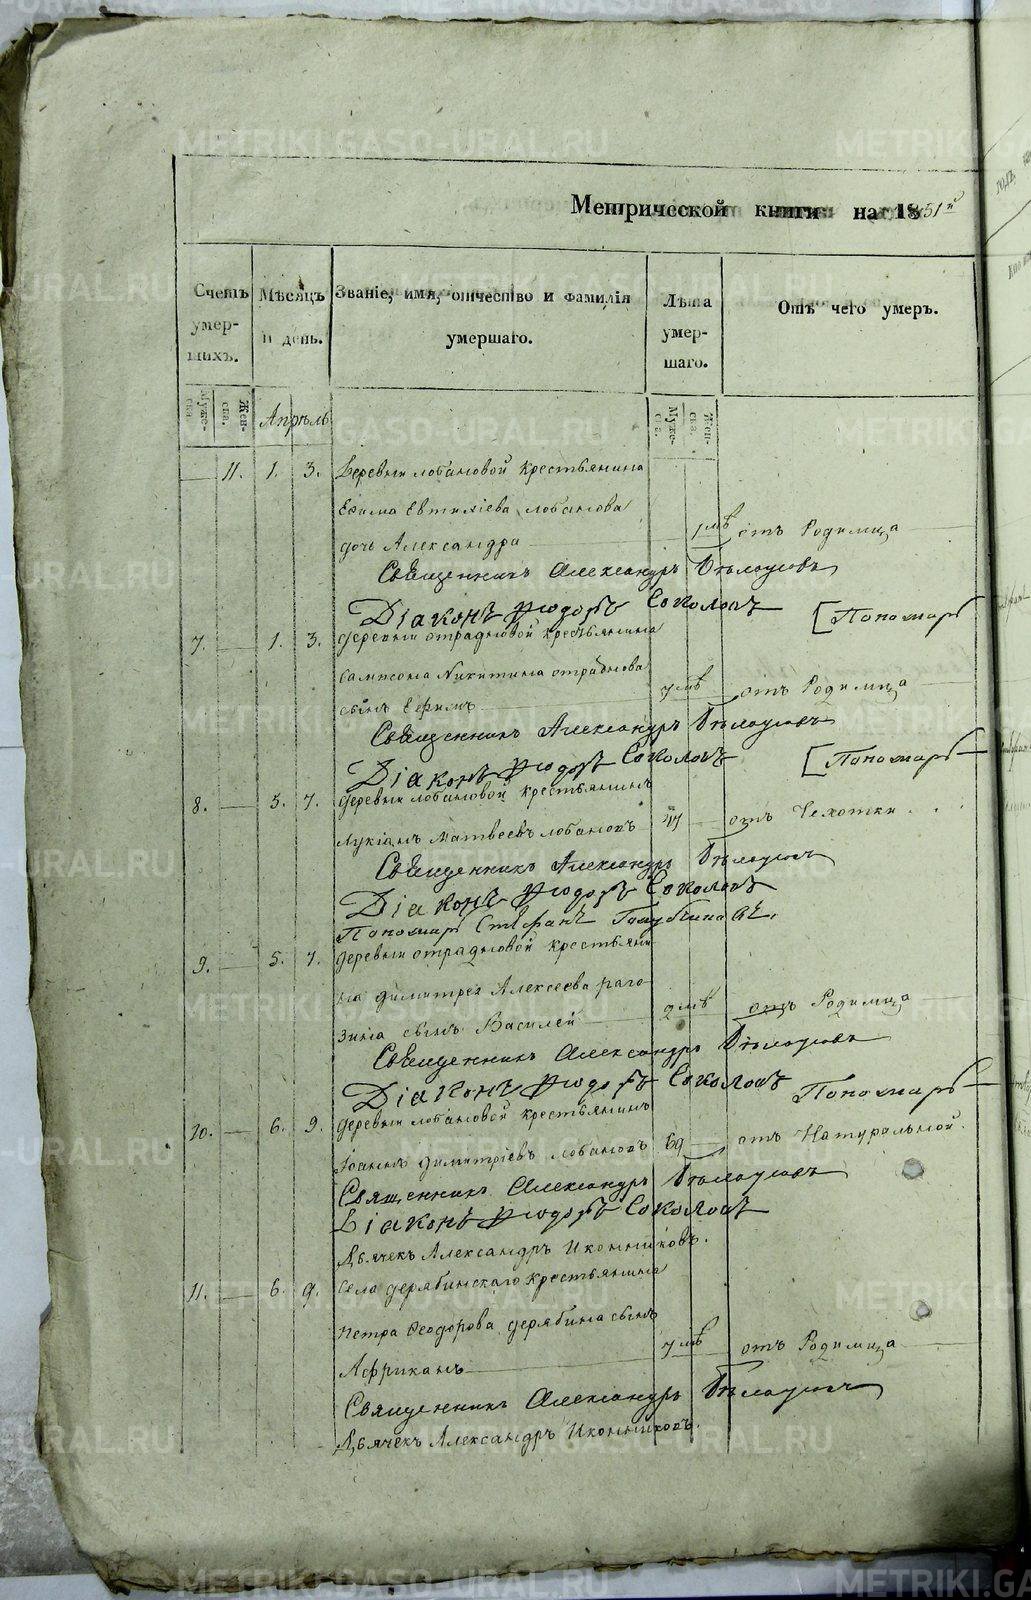 Метрической книги на 1851й
Счетъ умершихъ.
Мѣсяцъ и день.
Званіе, имя, отчество и фамилія умершаго.
Лѣта умершаго.
Отъ чего умеръ.
Мужеска.
Женска.
Апрѣль
Мужеска.
Женска.
11. 1. 3. Деревни лобановой крестьянина
Ефима Евтихіева лобанова
дочь Александра 1 мѣ отъ Родимца
Священникъ Александръ
Діаконъ Ѳеодоръ Соколовъ [Пономарь
7. 1. 3. деревни отрадновой крестьянина
Сампсона Никитина отраднова
сынъ Ефимъ 7 мѣ отъ Родимца
Священникъ Александръ
Діаконъ Ѳеодоръ Соколовъ [Пономарь
8. 5. 7. деревни лобановой крестьянинъ
Лукіанъ Матвеевъ лобановъ отъ Чехотки
Священникъ Александръ
Діаконъ Ѳеодоръ Соколовъ
Пономарь Стефанъ
9. 5. 7. деревни отрадновой крестьяни-
на димитрея Алексеева раго-
зина сынъ Василей 2 мѣ отъ Родимца
Священникъ Александръ
Діаконъ Ѳеодоръ Соколовъ Пономарь
10. 6. 9. деревни лобановой крестьянинъ
Іоаннъ димитріевъ лобановъ 69 отъ Натуральной.
Священникъ Александръ
Діаконъ Ѳеодоръ Соколовъ
Дьячекъ Александръ Иконниковъ.
11. 6. 9. Села дерябинскаго крестьянина
Петра Ѳеодорова дерябина сынъ
Африканъ 7 мѣ отъ Родимца
Священникъ Александръ
Дьячекъ Александръ Иконниковъ.
METRIKI.GASO-URAL.RU